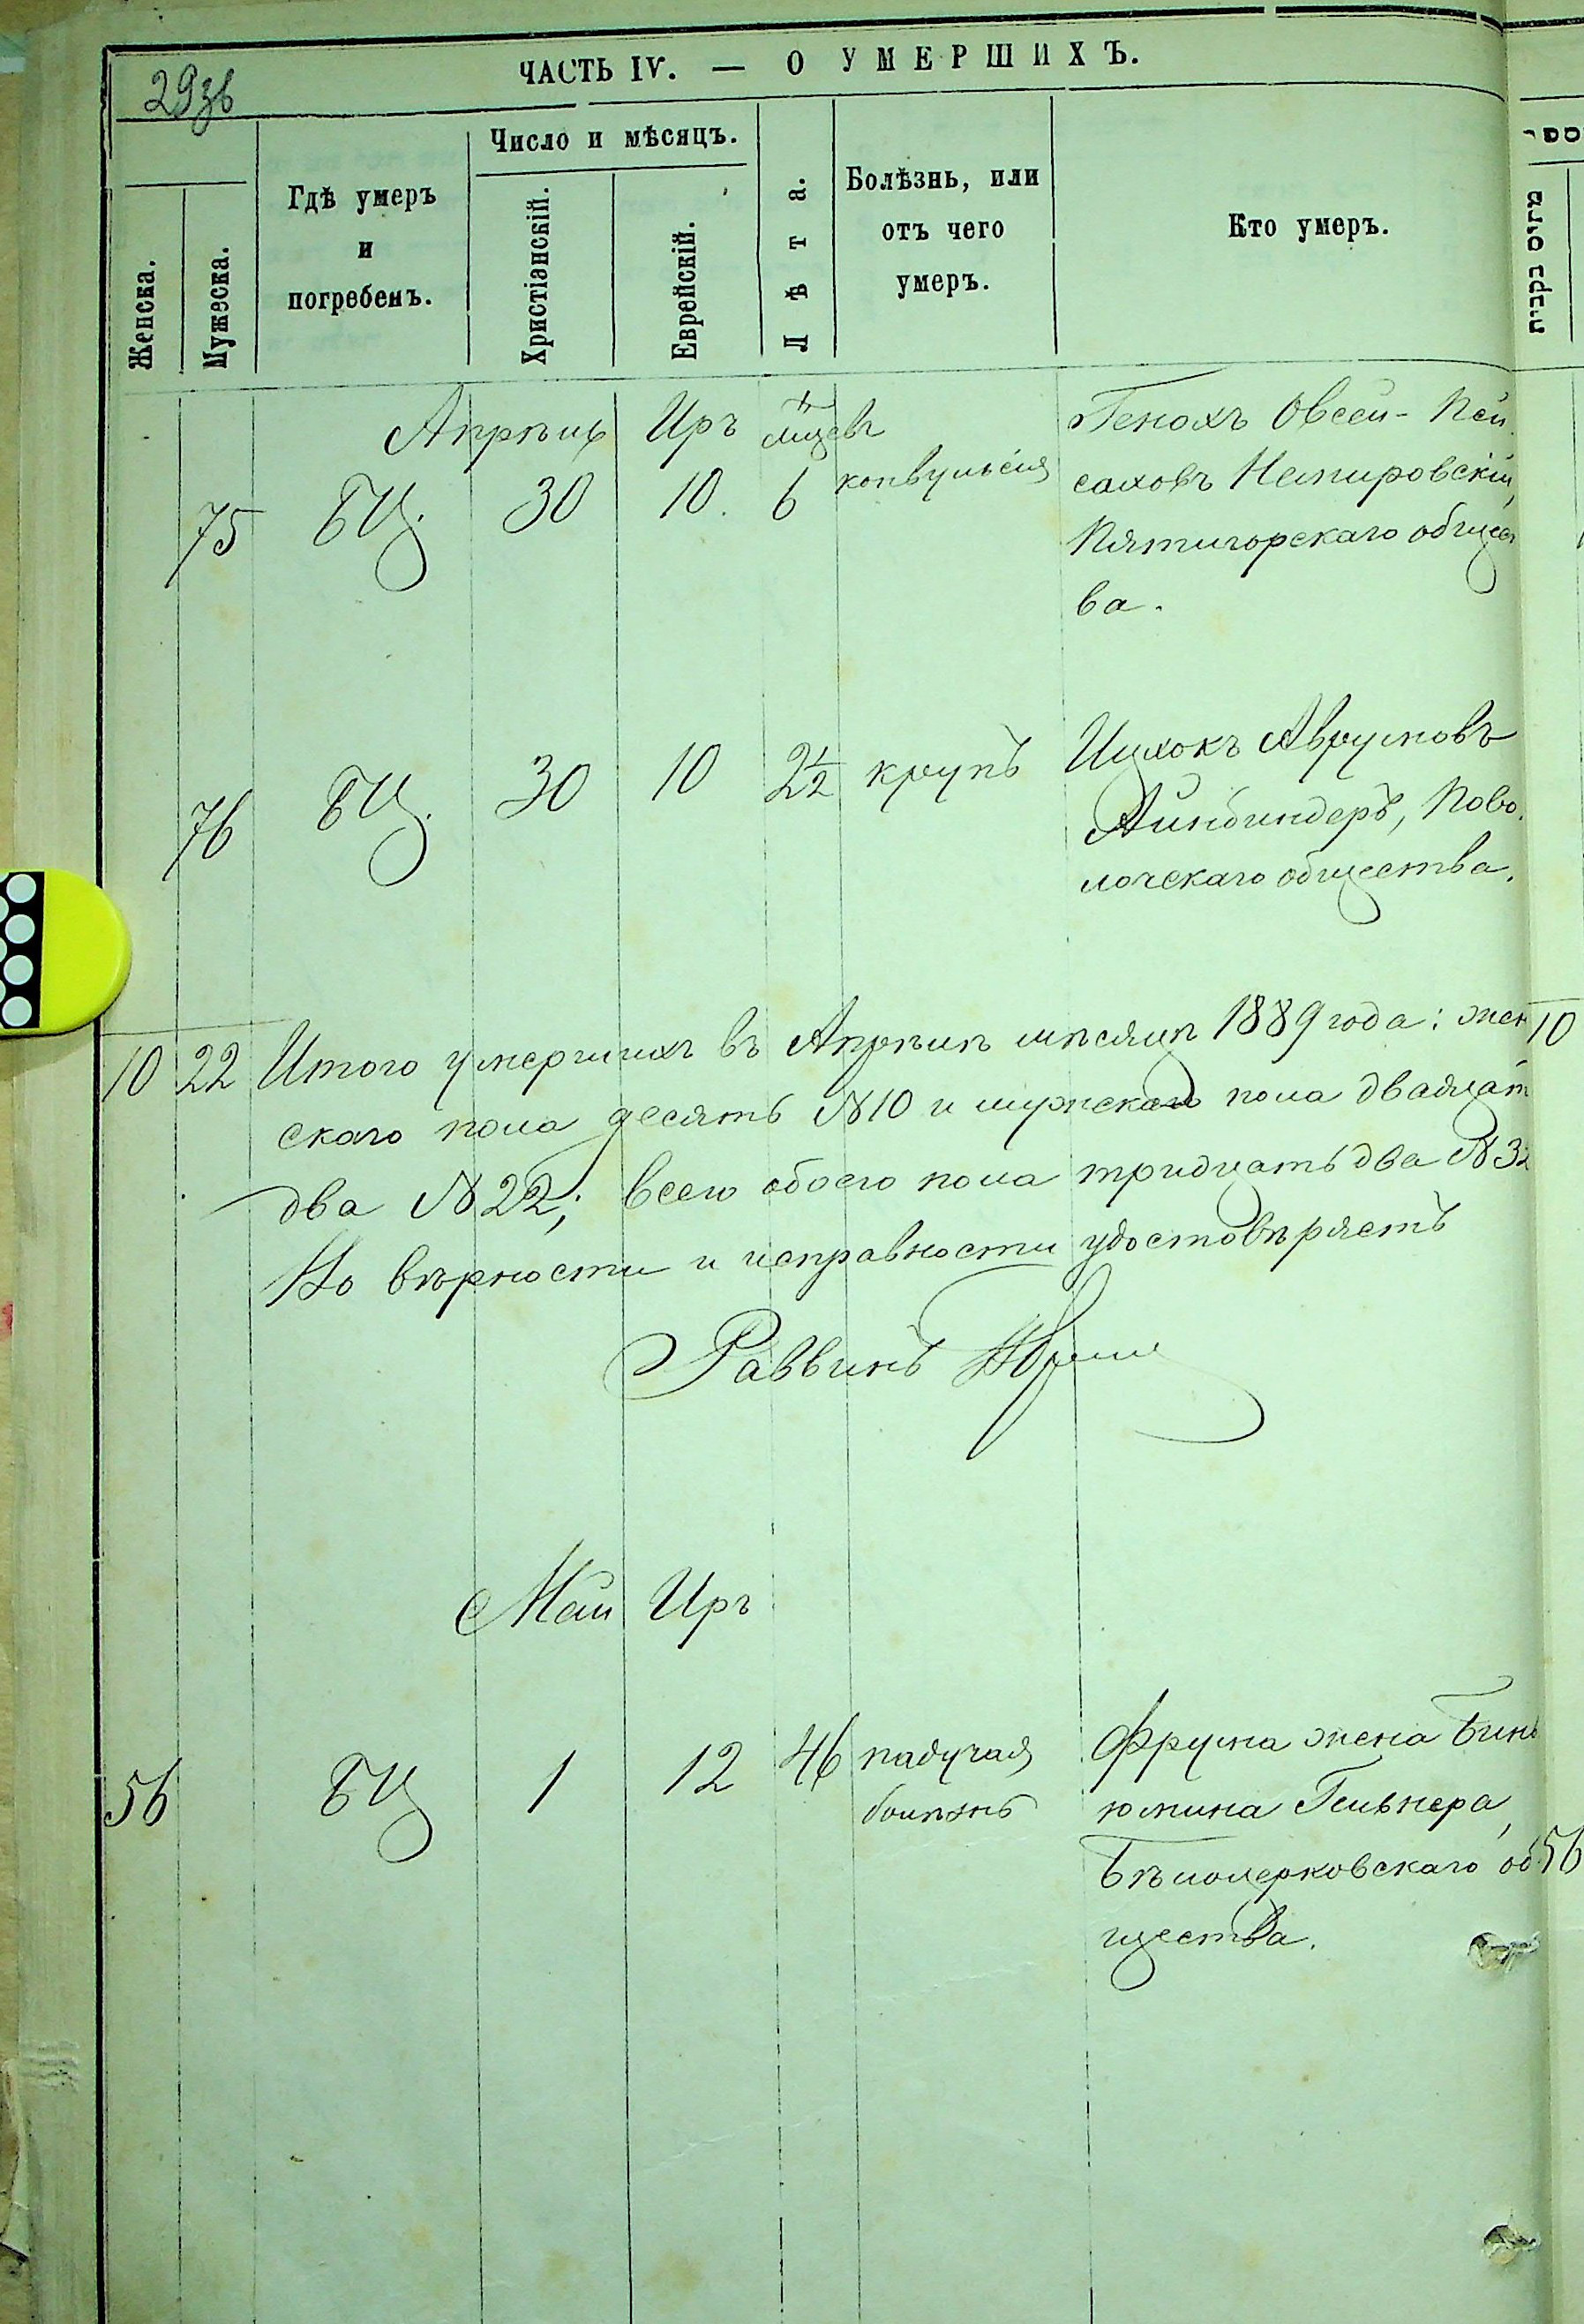 293б
ЧАСТЬ IV. — О УМЕРШИХЪ.
Женска.
Мужеска.
Гдѣ умеръ
и
погребенъ.
Число и мѣсяцъ.
Христіанскій.
Еврейскій.
Лѣта.
Болѣзнь, или
отъ чего
умеръ.
Кто умеръ.
מזיס בקבית
Апрѣль Иръ мцевъ
75 БЦ. 30 10. 6 конвульсія
Генохъ Овсей-Пей
саховъ Немировскій,
Пятигорскаго общест
ва.
76 БЦ. 30 10 2½ крупъ
Ицхокъ Аврумовъ
Айнбиндеръ, Пово
лочскаго общества.
10 22 Итого умершихъ въ Апрѣлѣ мѣсяцѣ 1889 года: жен 10
скаго пола десять №10 и мужскаго пола двадцат
два №22; всего обоего пола тридцать два №32
Но вѣрности и исправности удостовѣряетъ
Раввинъ
Май Иръ
56 БЦ 1 12 46 падучая
болѣзнь
Фрума жена Бинь
юмина Гельнера,
Бѣлоцерковскаго об 56
щества.